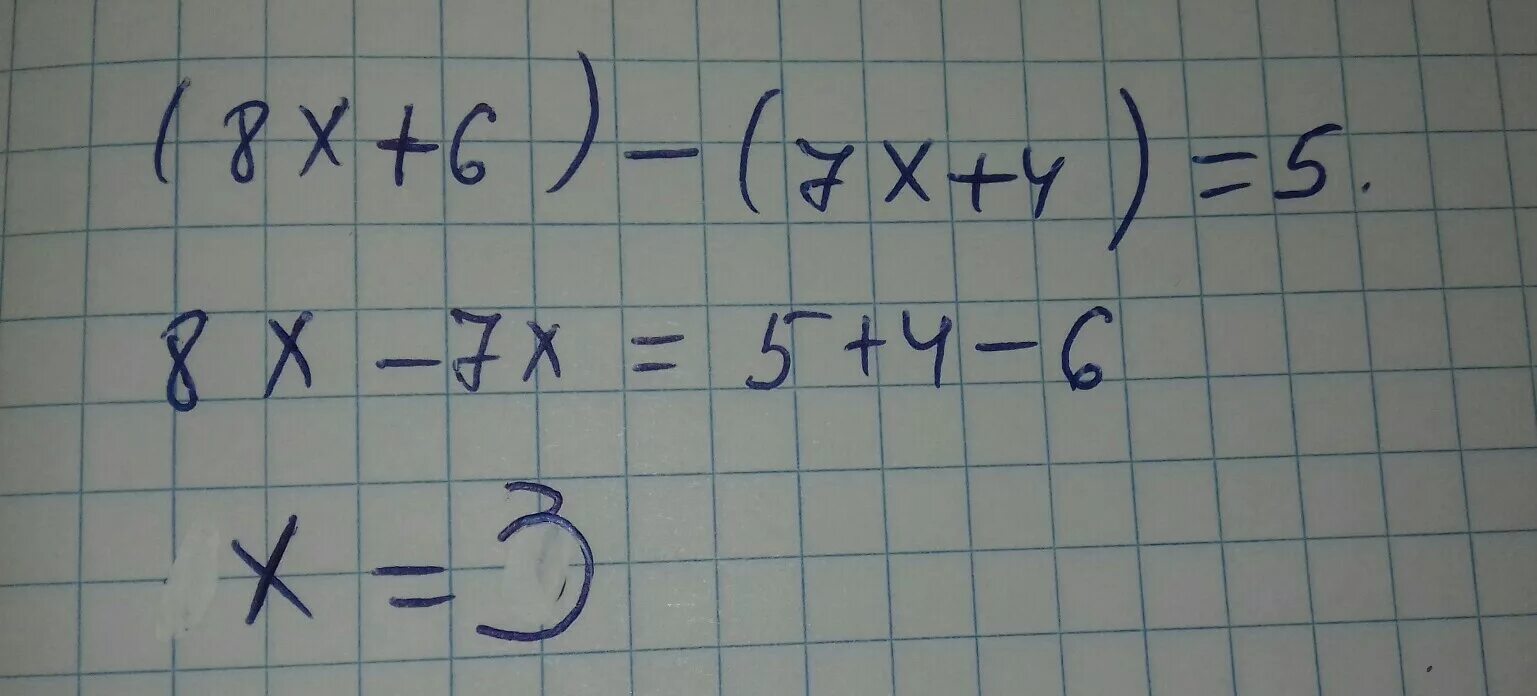 (8x+6)-(7x+4)=5.
8x-7x=5+4-6
x=3